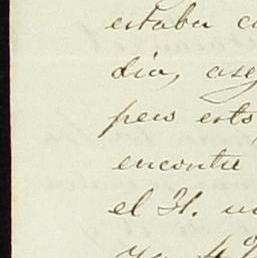 estaba c
dia, aseg
pero esto
encontré
el H. u